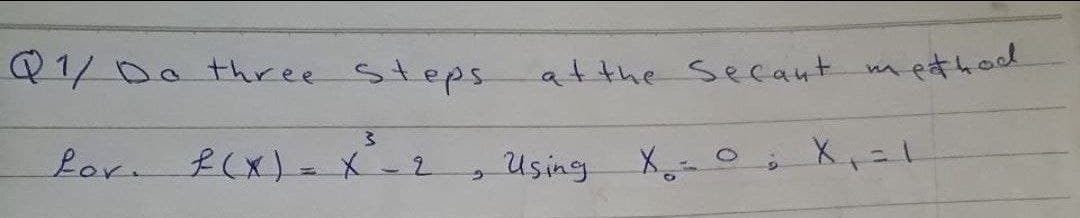 Q1/ Do three steps at the Secant method
for. f(x) = x³ - 2 , Using X₀ = 0 ; X₁ = 1